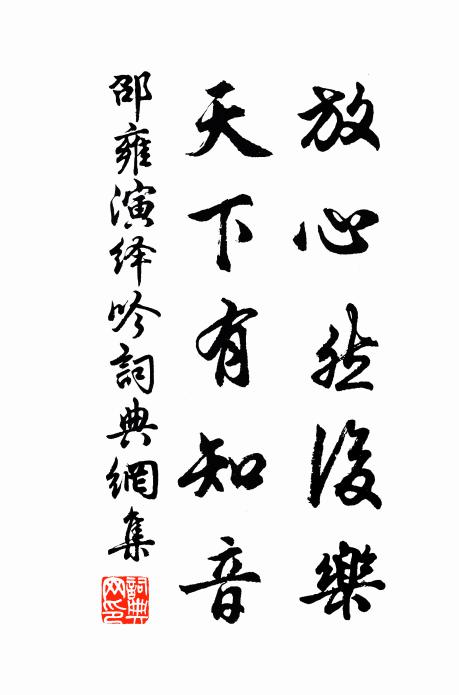 放心然後樂
天下有知音
邵雍演绎吟詞典網集
詞典網印